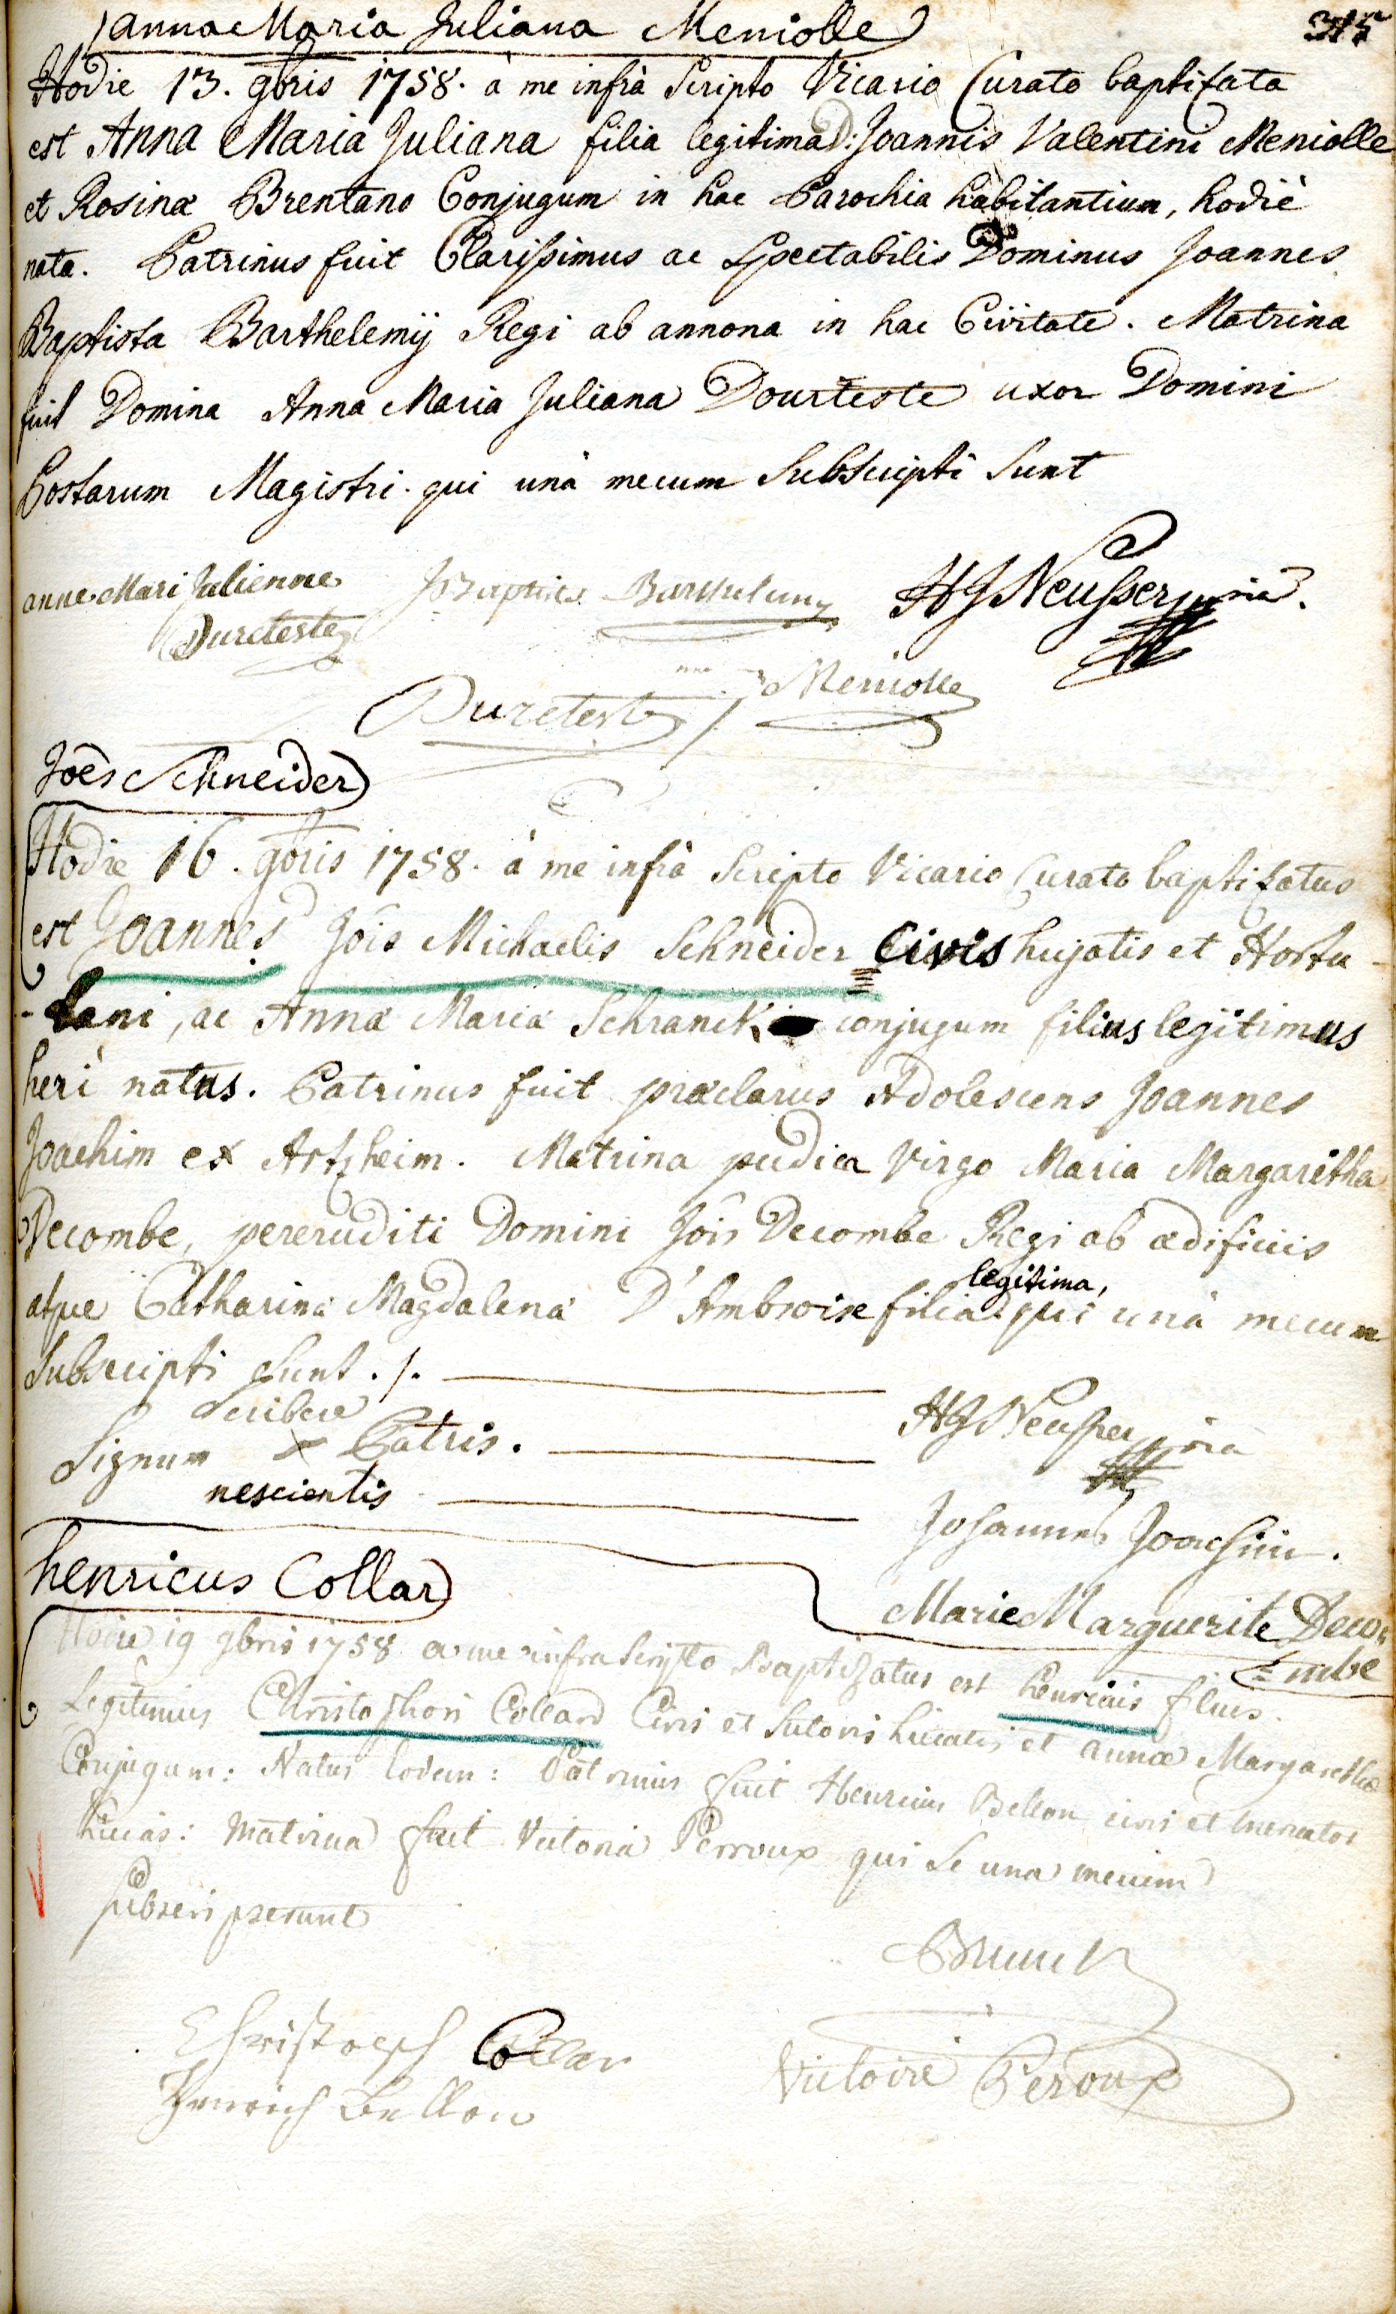 Anna Maria Juliana Meniolle
315
Hodie 13. 9bris 1758. à me infrà Scripto Vicario Curato baptizata
est Anna Maria Juliana filia legitima D: Joannis Valentini Meniolle
et Rosinæ Brentano Conjugum in hac Parochia habitantium, hodiè
nata. Patrinus fuit Clarissimus ac Spectabilis Dominus Joannes
Baptista Barthelemÿ Regi ab annona in hac Civitate. Matrina
fuit Domina Anna Maria Juliana Dourteste uxor Domini
Postarum Magistri. qui unà mecum Subscripti Sunt
anne Mari Julienne
Dureteste
JBaptiste Barthelemy
HJNeusser
Duretest
Meniolle
Joês Schneider
Hodie 16. 9bris 1758. à me infrà Scripto Vicario Curato baptizatus
est Joannes Jôis Michaelis Schneider Civis hujatis et Hortu-
-lani, ac Annæ Mariæ Schranck conjugum filius legitimus
heri natus. Patrinus fuit præclarus Adolescens Joannes
Joachim ex Artzheim. Matrina pudica Virgo Maria Margaritha
Decombe, pererruditi Domini Jôis Decombe Regi ab ædificiis
atque Catharinæ Magdalenæ D'Ambroise filia legitima, qui unà mecum
Subscripti Sunt ./.
Scribere
Signum x Patris.
nescientis
HJNeusser
Johannes Joachim.
Marie Marguerite Deco
mbe
henricus Collar
Hodie 19 9bris 1758 a me infra Scripto Baptizatus est henricus filius
Legitimus Christophori Collard Civis et Sutoris hicatis et annæ Margarethæ
Conjugum: Natus Eodem: Patrinus fuit Henricus Bellon civis et mercator
hicias: Matrina fuit Victoria Perroux qui Se una mecum
Subscripserunt
Christoph Collar
Henrich Bellon
Victoire Peroux